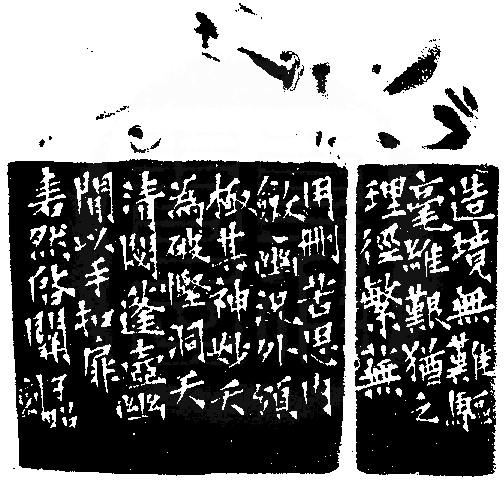 造境無難驅
毫維艱猶之
理徑繁蕪
用刪苦思內
斂幽況外頒
極其神妙天
為破慳洞天
清閟蓬壺幽
閒以手扣扉
砉然啓關